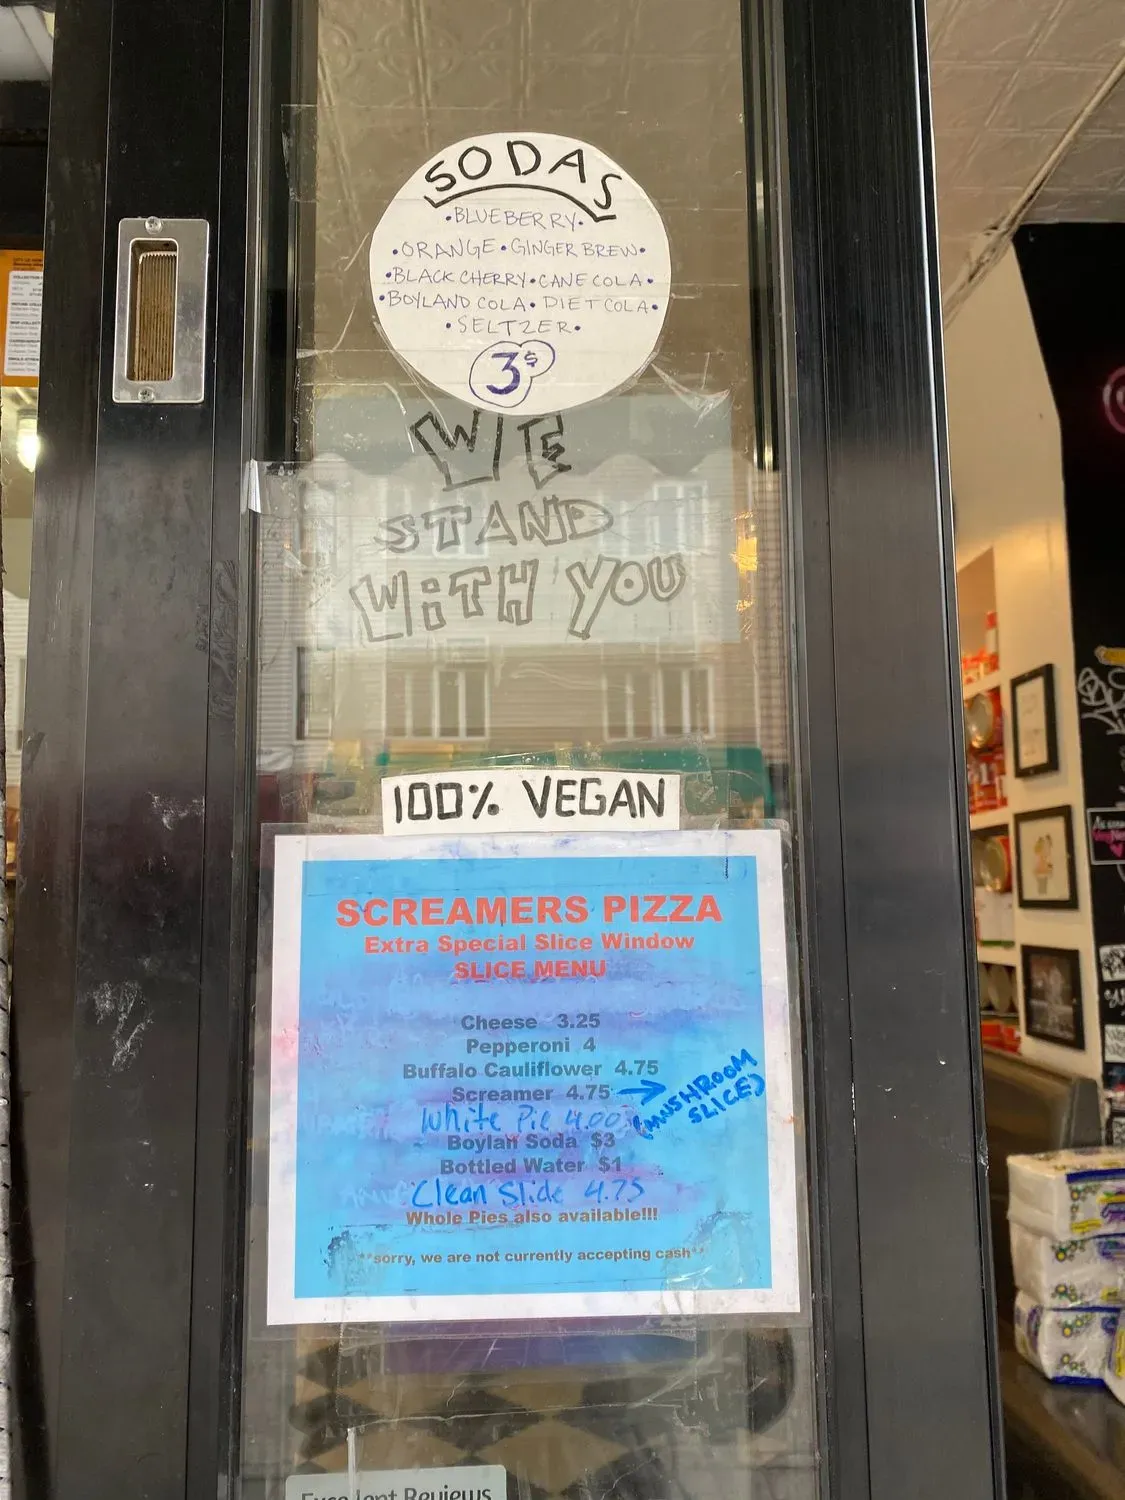 SODAS
•BLUEBERRY•
•ORANGE•GINGER BREW•
•BLACK CHERRY•CANE COLA•
•BOYLAND COLA•DIET COLA•
•SELTZER•
3$
WE
STAND
WITH YOU
100% VEGAN
SCREAMERS PIZZA
Extra Special Slice Window
SLICE MENU
Cheese 3.25
Pepperoni 4
Buffalo Cauliflower 4.75
Screamer 4.75 → (MUSHROOM
SLICE)
White Pie 4.00
Boylan Soda $3
Bottled Water $1
Clean Slide 4.75
Whole Pies also available!!!
**sorry, we are not currently accepting cash**
Excellent Reviews